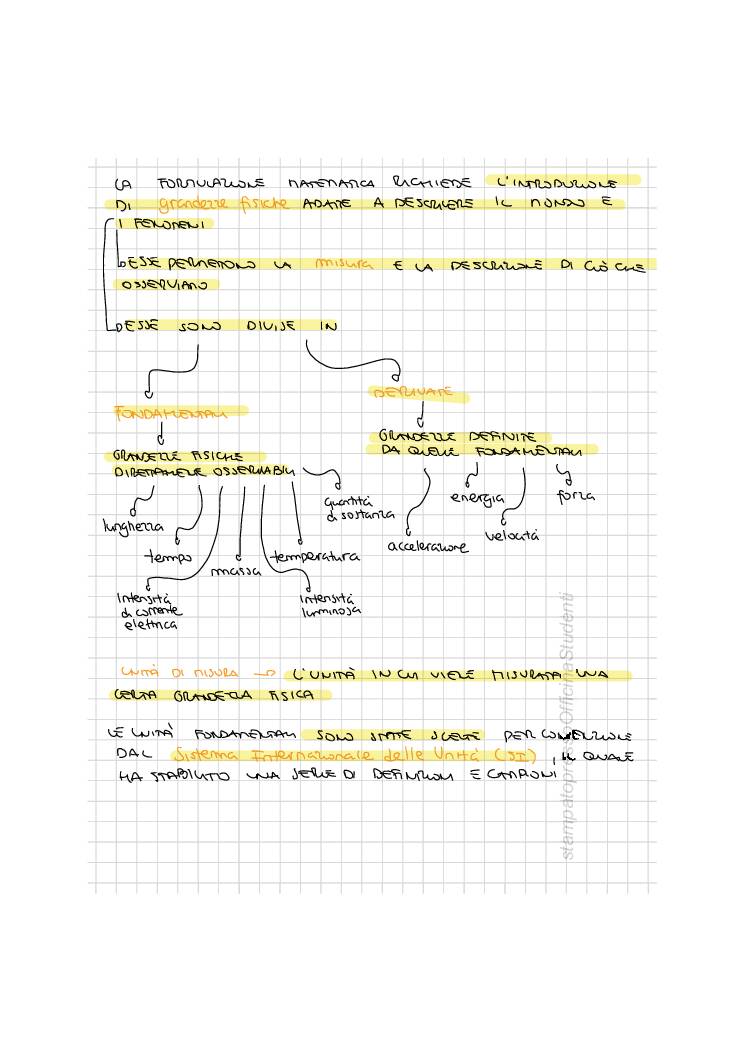 LA FORMULAZIONE MATEMATICA RICHIEDE L'INTRODUZIONE
DI grandezze fisiche ADATTE A DESCRIVERE IL MONDO E
I FENOMENI
ESSE PERMETTONO LA misura E LA DESCRIZIONE DI CIÒ CHE
OSSERVIAMO
ESSE SONO DIVISE IN
FONDAMENTALI
DERIVATE
GRANDEZZE FISICHE
DIRETTAMENTE OSSERVABILI
GRANDEZZE DEFINITE
DA QUELLE FONDAMENTALI
lunghezza
tempo
Intensità
di corrente
elettrica
massa
temperatura
Intensità
luminosa
quantità
di sostanza
accelerazione
energia
velocità
forza
UNITÀ DI MISURA → L'UNITÀ IN CUI VIENE MISURATA UNA
CERTA GRANDEZZA FISICA
LE UNITÀ FONDAMENTALI SONO STATE SCELTE PER CONVENZIONE
DAL Sistema Internazionale delle Unità (SI), IL QUALE
HA STABILITO UNA SERIE DI DEFINIZIONI E CAMPIONI
stampatopressoOfficinaStudenti